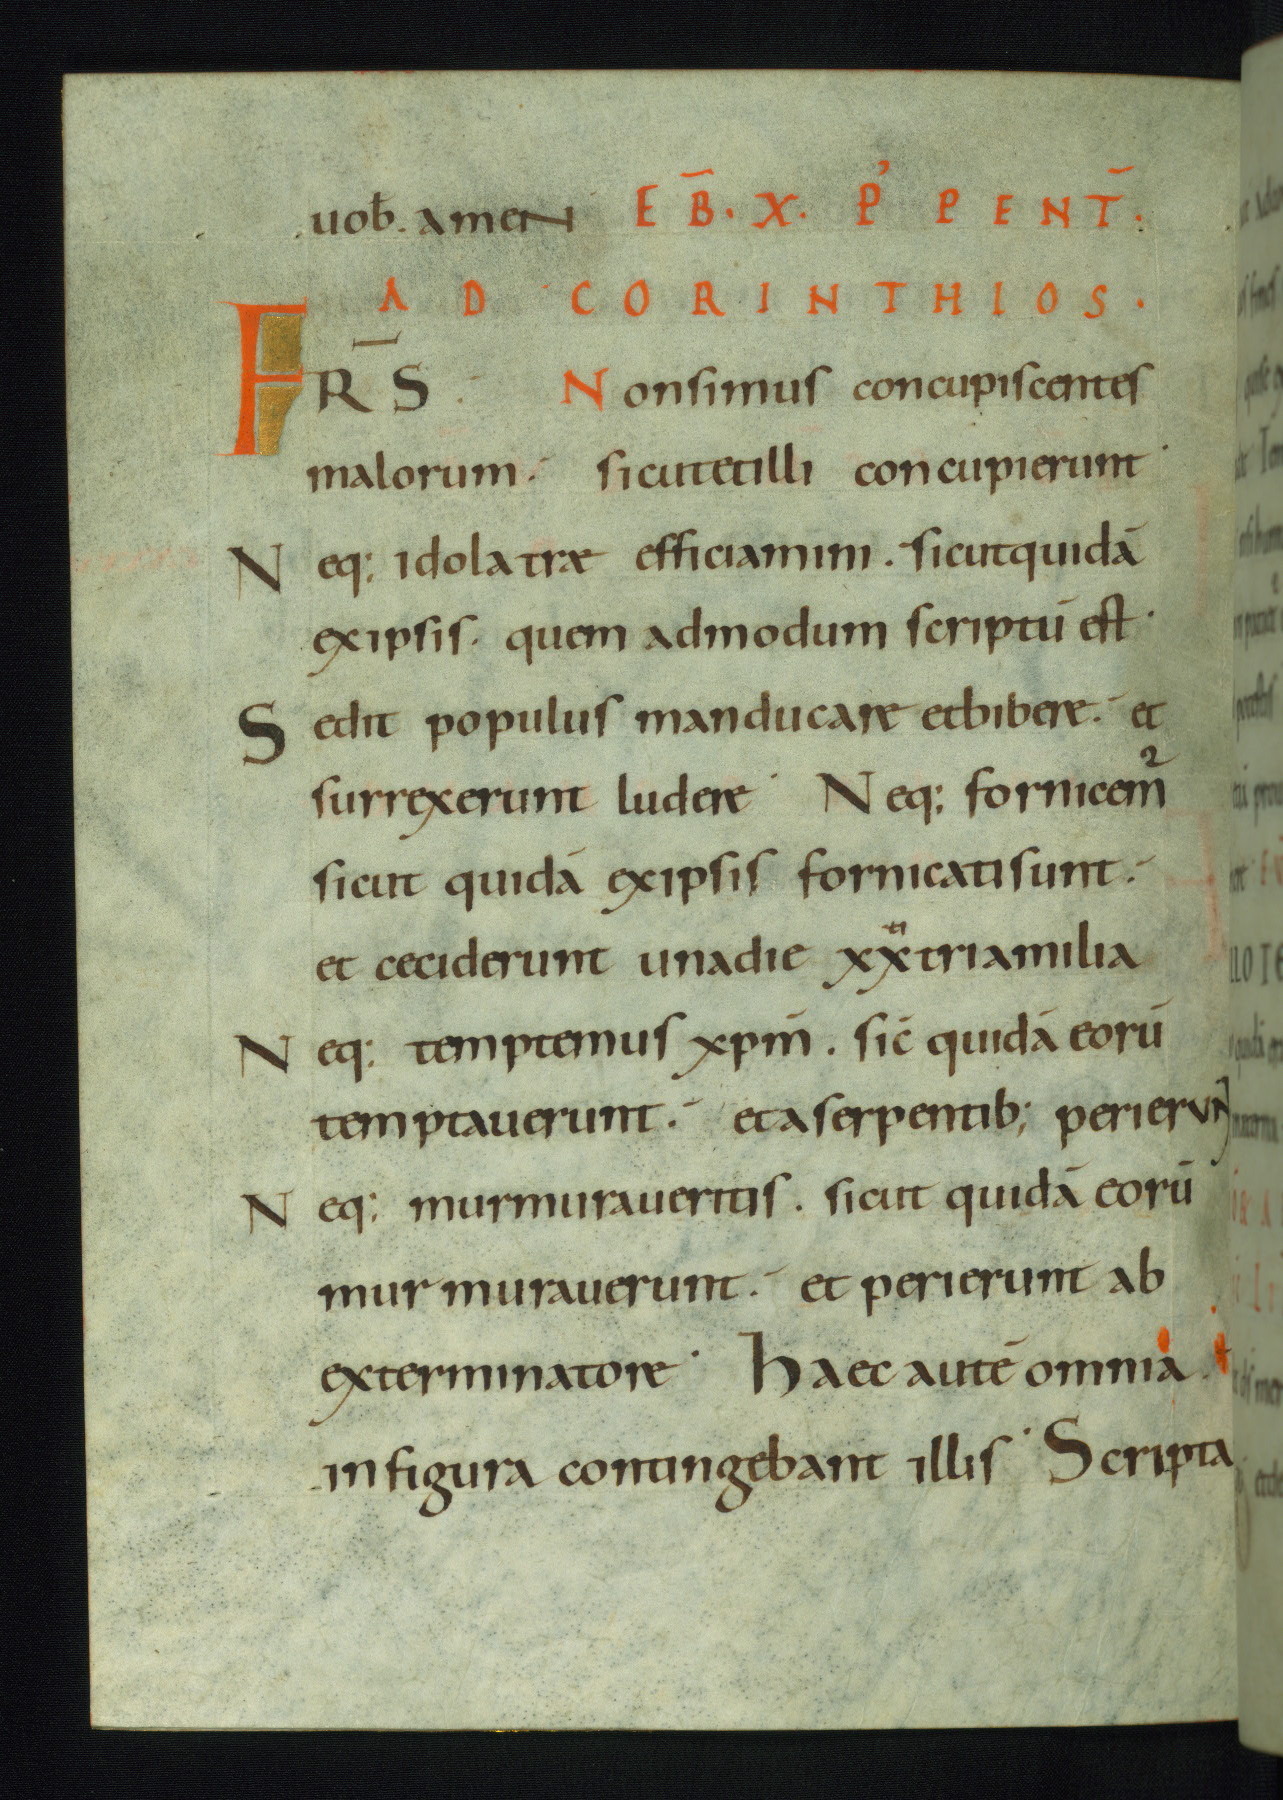 uob̄. amen EB̄. X. P᾽ PENT̄.
AD CORINTHIOS.
FRS̄ Nonsimus concupiscentes
malorum. sicutetilli concupierunt
Neq; idolatrae efficiamini. sicutquidā
exipsis. quem admodum scriptū est
Sedit populus manducare etbibere. et
surrexerunt ludere Neq; fornicem̃
sicut quidā exipsis fornicatisunt.
et ceciderunt unadie xxtriamilia
Neq; temptemus xpm̄. sic̄ quidā eorū
temptauerunt. etaserpentib; perierunt
Neq; murmuraueritis. sicut quidā eorū
murmurauerunt. et perierunt ab
exterminatore haec autē omnia
infigura contingebant illis Scripta